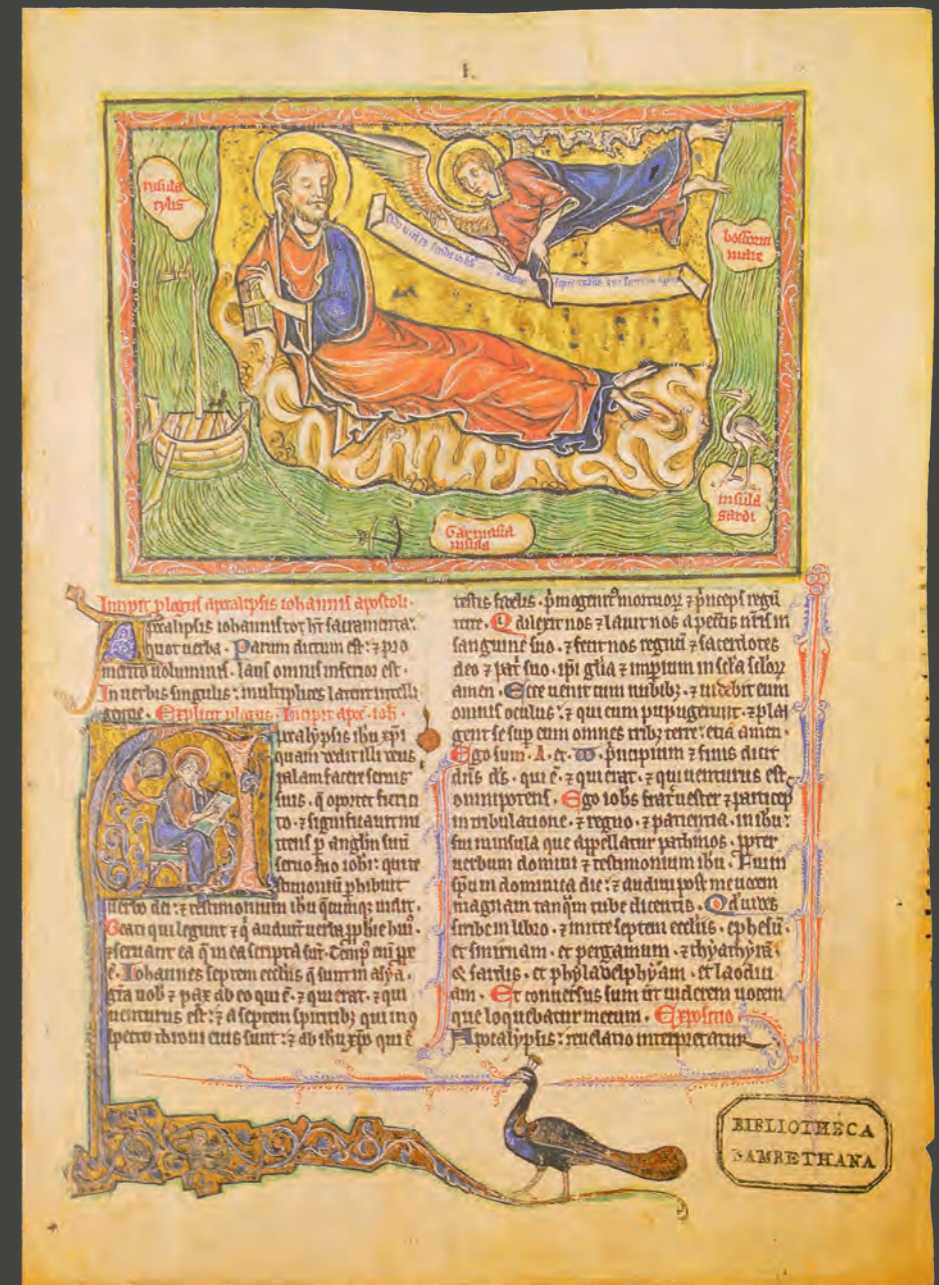 I.
insula
tylis
bosforum
mare
insula
sardi
Garmasia
insula
Incipit plogus apocalipsis iohannis apostoli.
Apocalipsis iohannis tot ht sacramenta:
quot uerba. Parum dictum est: ⁊ pro
merito uoluminis. laus omnis inferior est.
In uerbis singulis: multiplices latent intelli
gentie. Explicit plogus. Incipit apoc. ioh.
Apocalypsis ihu xpi
quam dedit illi deus
palam facere seruis
suis. q̄ oportet fieri ci
to. ⁊ significauit mi
ttens p anglm suū
seruo suo iohi: qui te
stimoniū phibuit
uerbo dei: ⁊ testimonium ihu q̄cumq; uidit.
Beati qui legunt ⁊ q̄ audiunt uerba pphie hui᷒.
⁊ seruant ea q̄ in ea scripta sūt. Temp᷒ eni ppe
ē. Iohannes septem ecclijs q̄ sunt in asya.
gr̄a uob ⁊ pax ab eo qui ē. ⁊ qui erat. ⁊ qui
uenturus est: ⁊ a septem spiritib; qui in 9
spectu throni eius sunt: ⁊ ab ihu xpo qui ē
testis fidelis. pmogenit᷒ mortuoꝝ ⁊ pinceps regū
terre. Qi dilexit nos ⁊ lauit nos a peccatis nr̄is in
sanguine suo. ⁊ fecit nos regnū ⁊ sacerdotes
deo ⁊ patri suo. ipi gl̄ia ⁊ impium in scl̄a scl̄oꝝ
amen. Ecce uenit cum nubib; ⁊ uidebit eum
omnis oculus: ⁊ qui eum pupugerunt. ⁊ plā
gent se sup eum omnes trib; terre: etiā amen.
Ego sum. A. et. ω. pincipium ⁊ finis dicit
dn̄s d̄s. qui ē. ⁊ qui erat. ⁊ qui uenturus est
omnipotens. Ego iohs frat̄ uester ⁊ particeps
in tribulatione. ⁊ regno. ⁊ patientia. in ihu:
fui in insula que appellatur pathmos. ppter
uerbum domini ⁊ testimonium ihu. Fui in
sp̄u in dominica die: ⁊ audiui post me uocem
magnam tanq̄m tube dicentis. Qd uides
scribe in libro. ⁊ mitte septem ecclijs. ephesū.
et smirnam. et pergamum. ⁊ thyathyrā.
& sardis. et phyladelphyam. et laodici
am. Et conuersus sum ut uiderem uocem
que loquebatur mecum. Expositio.
Apocalypsis: reuelatio interpretatur
BIBLIOTHECA
LAMBETHANA